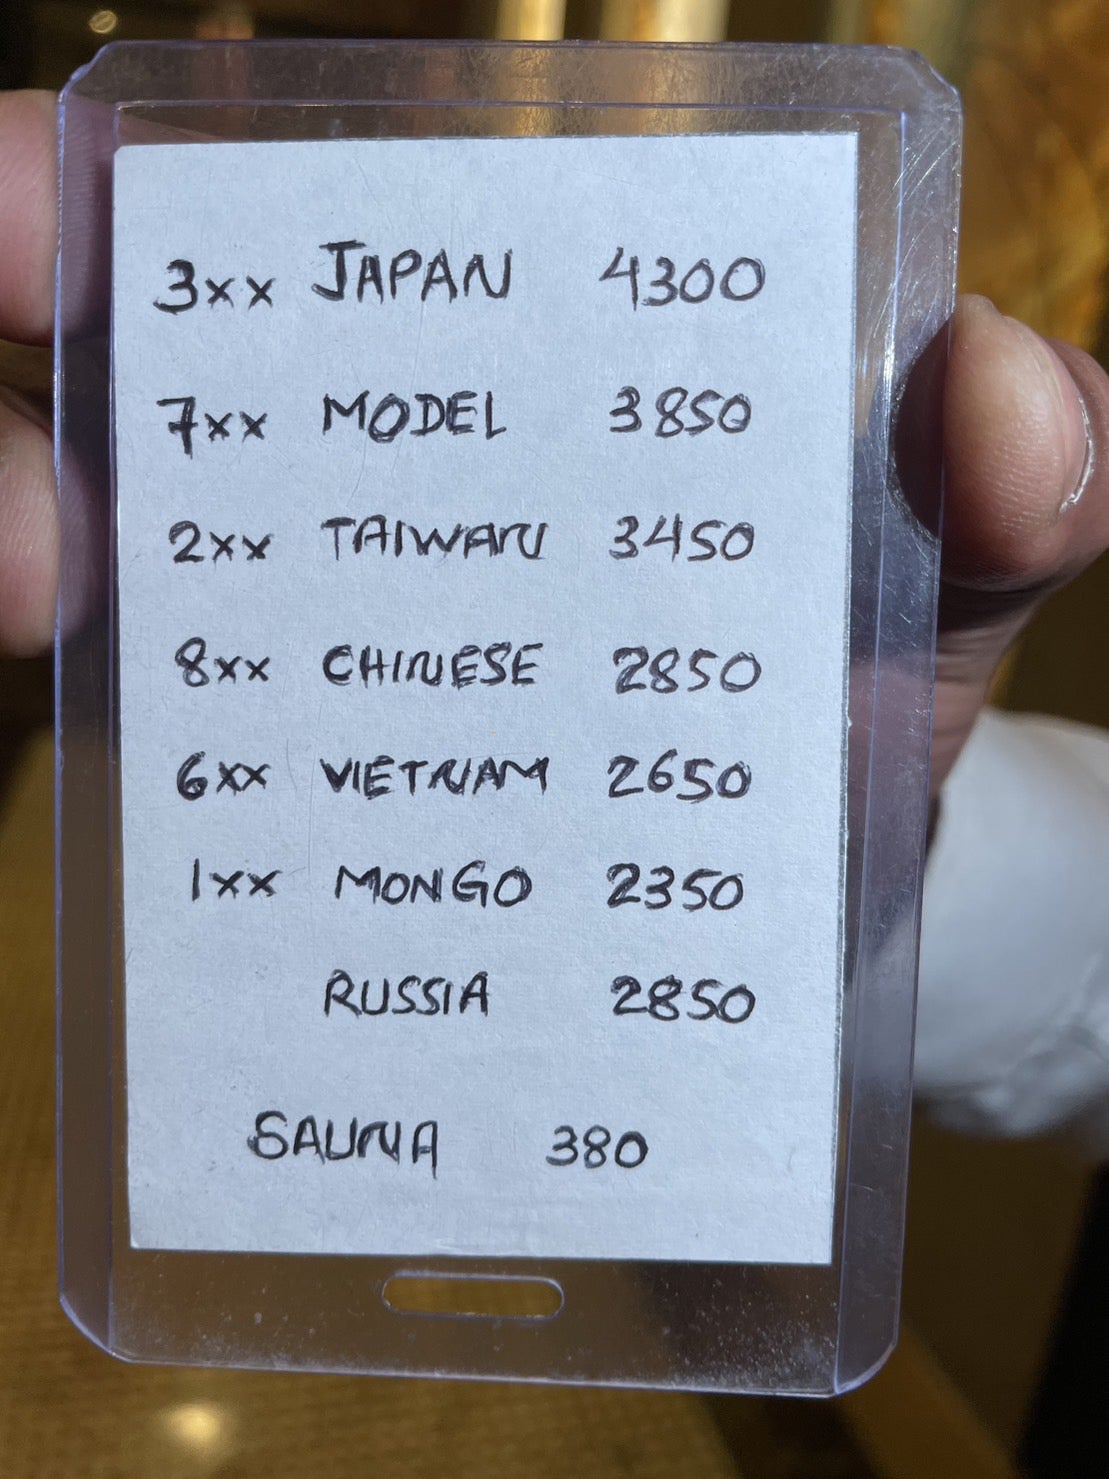 3xx JAPAN 4300
7xx MODEL 3850
2xx TAIWAN 3450
8xx CHINESE 2850
6xx VIETNAM 2650
1xx MONGO 2350
RUSSIA 2850
SAUNA 380